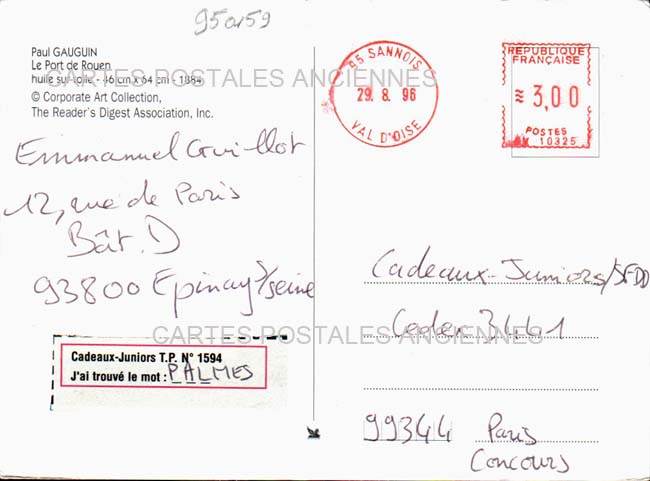 950159
Paul GAUGUIN
Le Port de Rouen
huile sur toile - 46 cm x 64 cm - 1884
© Corporate Art Collection,
The Reader's Digest Association, Inc.
CARTES POSTALES ANCIENNES
95 SANNOIS
29. 8. 96
VAL D'OISE
REPUBLIQUE
FRANÇAISE
≈ 3,00
POSTES
10325
Emmanuel Guillot
12, rue de Paris
Bât. D
93800 Epinay s/seine
Cadeaux-Juniors/SFDD
Cedex 3441
CARTES POSTALES ANCIENNES
Cadeaux-Juniors T.P. N° 1594
J'ai trouvé le mot : PALMES
99344 Paris
Concours